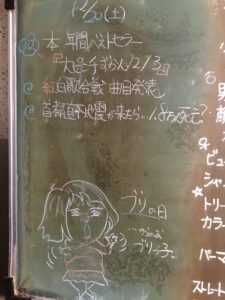 12/20(土)
本 年間ベストセラー
「大ピンチずかん1、2、3」
紅白歌合戦 曲目発表
首都直下地震が来たら…1.8万人死亡?
ブリの日
ブリっ子
男
ビュー
シャン
★トリー
カラー
パーマ
ストレート